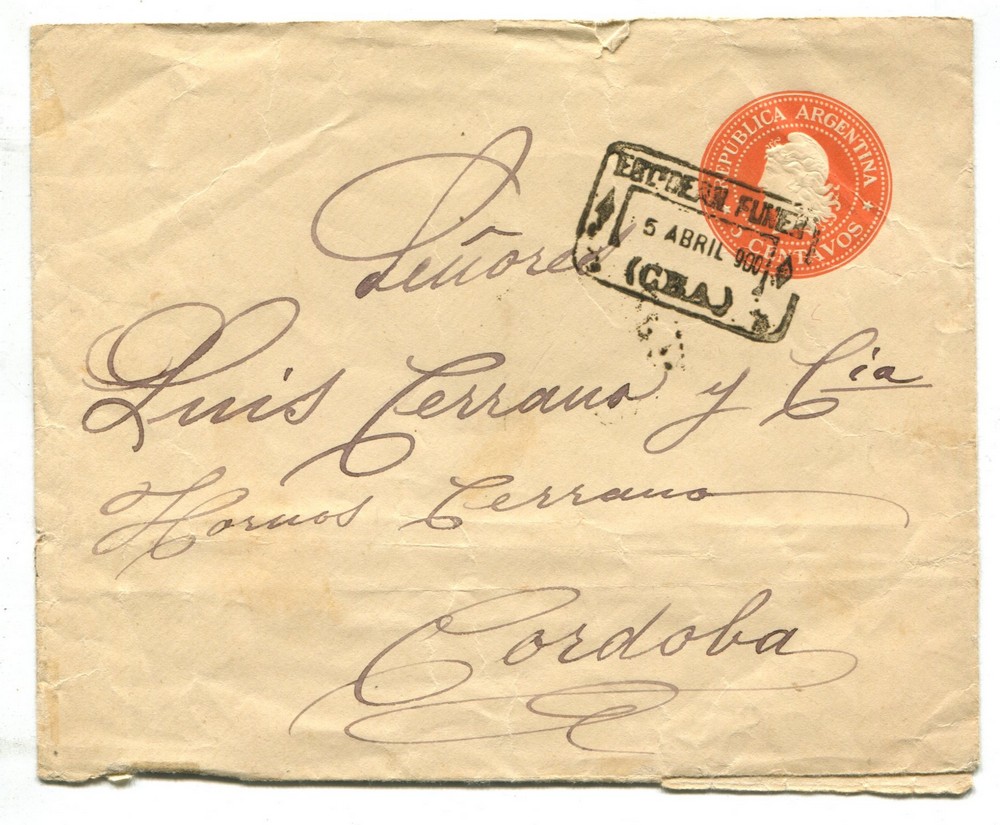 REPÚBLICA ARGENTINA
5 CENTAVOS
EST. DEAN FUNES
5 ABRIL 900
(CBA.)
Señores
Luis Cerrano y Cía
Hornos Cerrano
Cordoba